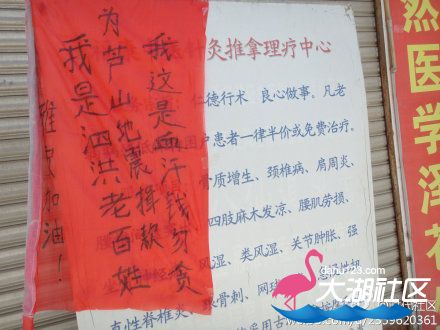 我是泗洪老百姓
为芦山地震捐款
我这是血汗钱勿贪
雅安加油!
针灸推拿理疗中心
仁德行术 良心做事。凡老
困户患者一律半价或免费治疗。
骨质增生、颈椎病、肩周炎、
四肢麻木发凉、腰肌劳损、
风湿、类风湿、关节肿胀、强
直性脊椎炎、
骨刺、网球
然医学泽
大湖社区
dahu123.com